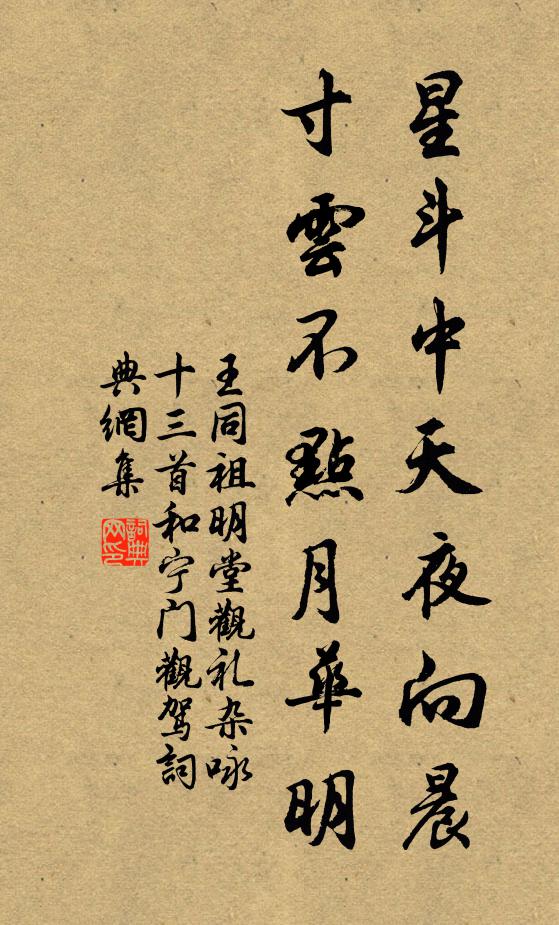 星斗中天夜向晨
寸雲不點月華明
王同祖明堂觀礼杂咏
十三首和宁门觀駕詞
典網集
詞典网印